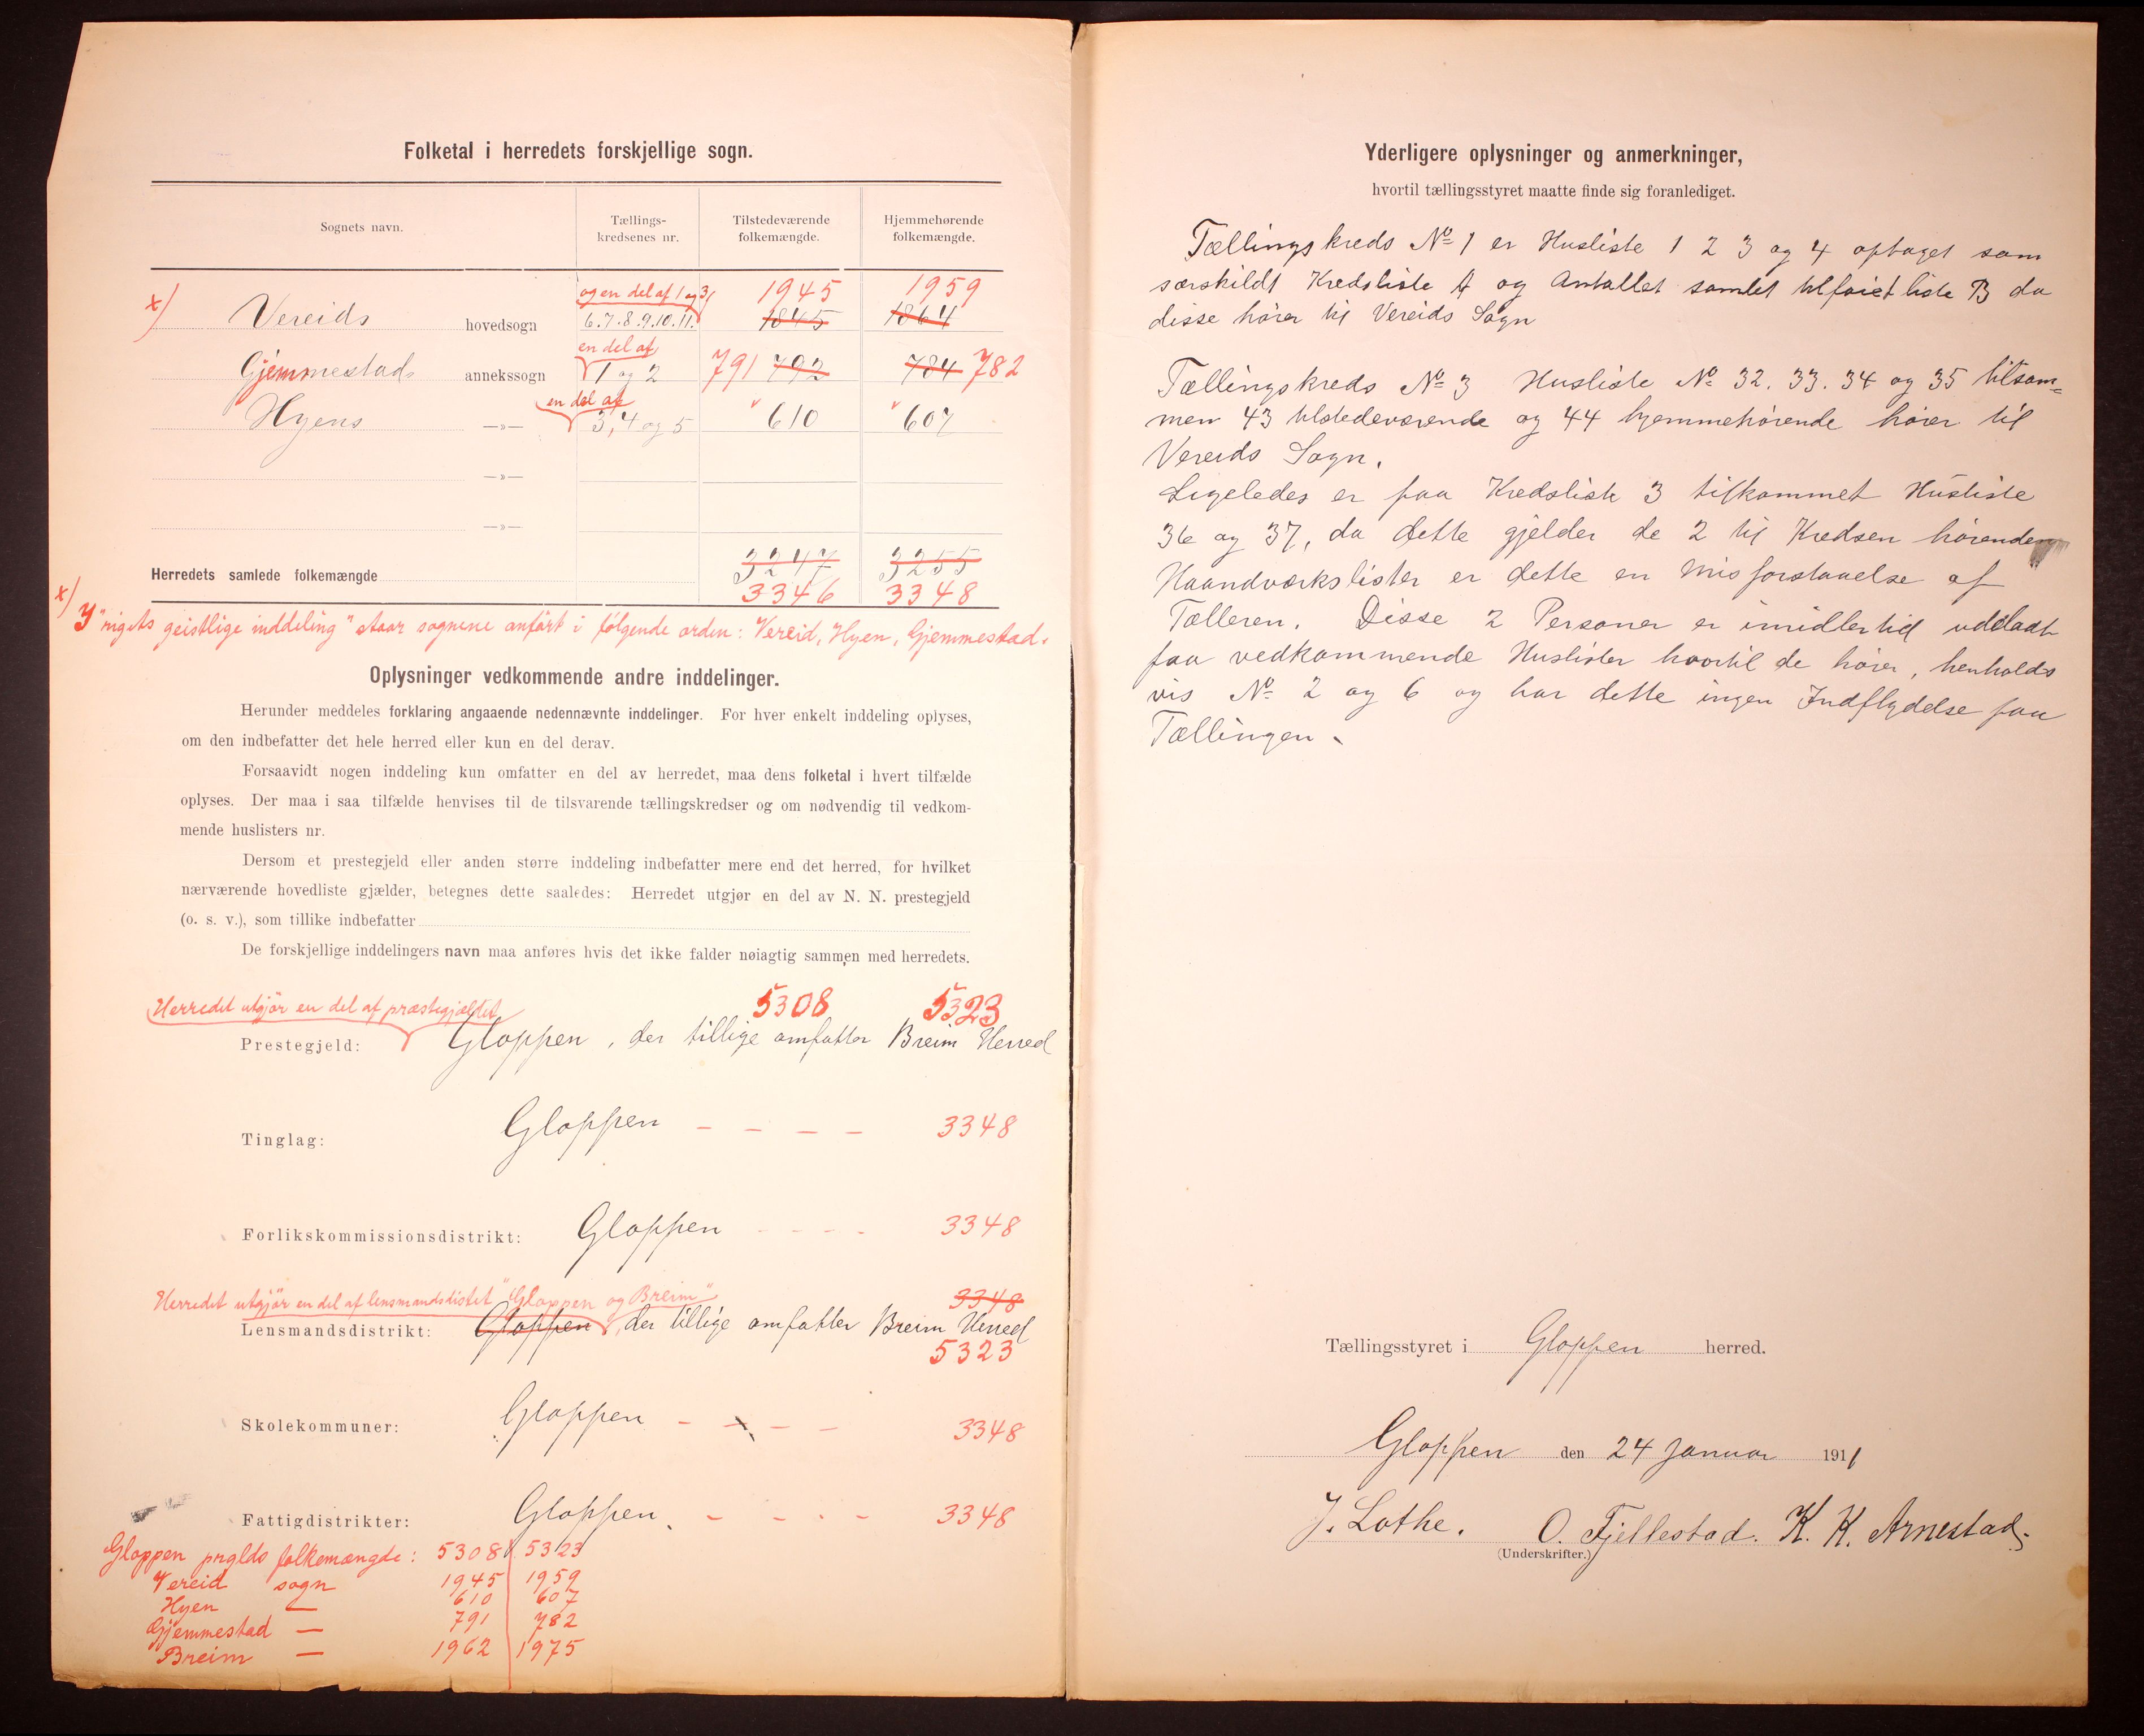 Folketal i herredets forskjellige sogn.
Sognets navn.
Tællings-
kredsenes nr.
Tilstedeværende
folkemængde.
Hjemmehørende
folkemængde.
x)
og en del af 1 og 3
1945
1959
Vereids hovedsogn 6.7.8.9.10.11. 1845 1864
en del af
Gjemmestads annekssogn 1 og 2 791 792 784 782
en del af
Hyens —»— 3, 4 og 5 610 607
—»—
—»—
3247 3255
Herredets samlede folkemængde
3346 3348
x) I "rigets geistlige inddeling" staar sognene anført i følgende orden: Vereid, Hyen, Gjemmestad.
Oplysninger vedkommende andre inddelinger.
Herunder meddeles forklaring angaaende nedennævnte inddelinger. For hver enkelt inddeling oplyses,
om den indbefatter det hele herred eller kun en del derav.
Forsaavidt nogen inddeling kun omfatter en del av herredet, maa dens folketal i hvert tilfælde
oplyses. Der maa i saa tilfælde henvises til de tilsvarende tællingskredser og om nødvendig til vedkom-
mende huslisters nr.
Dersom et prestegjeld eller anden større inddeling indbefatter mere end det herred, for hvilket
nærværende hovedliste gjælder, betegnes dette saaledes: Herredet utgjør en del av N. N. prestegjeld
(o. s. v.), som tillike indbefatter
De forskjellige inddelingers navn maa anføres hvis det ikke falder nøiagtig sammen med herredets.
Herredet utgjør en del af præstegjældet 5308 5323
Prestegjeld: Gloppen, der tillige omfatter Breim Herred
Tinglag: Gloppen – – – – 3348
Forlikskommissionsdistrikt: Gloppen – – – – 3348
Herredet utgjør en del af lensmandsdistet "Gloppen og Breim" 3348
Lensmandsdistrikt: Gloppen, der tillige omfatter Breim Herred
5323
Skolekommuner: Gloppen – – – – 3348
Fattigdistrikter: Gloppen. – – – – 3348
Gloppen prgjlds folkemængde: 5308 5323
Vereid sogn 1945 1959
Hyen — 610 607
Gjemmestad — 791 782
Breim — 1962 1975
Yderligere oplysninger og anmerkninger,
hvortil tællingsstyret maatte finde sig foranlediget.
Tællingskreds No 1 er Husliste 1 2 3 og 4 optaget som
særskildt Kredsliste A og Antallet samlet tilføiet liste B da
disse hører til Vereids Sogn
Tællingskreds No 3 Husliste No 32. 33. 34 og 35 tilsam=
men 43 tilstedeværende og 44 hjemmehørende hører til
Vereids Sogn.
Ligeledes er paa Kredsliste 3 tilkommet Husliste
36 og 37, da dette gjelder de 2 til Kredsen hørende
Haandværkslister er dette en Misforstaaelse af
Tælleren. Disse 2 Personer er imidlertid uddladt
paa vedkommende Huslister hvortil de hører, henholds
vis No 2 og 6 og har dette ingen Indflydelse paa
Tællingen.
Tællingsstyret i Gloppen herred.
Gloppen den 24 Januar 1911
J. Lothe. O. Fjellestad. K. K. Arnestad.
(Underskrifter.)